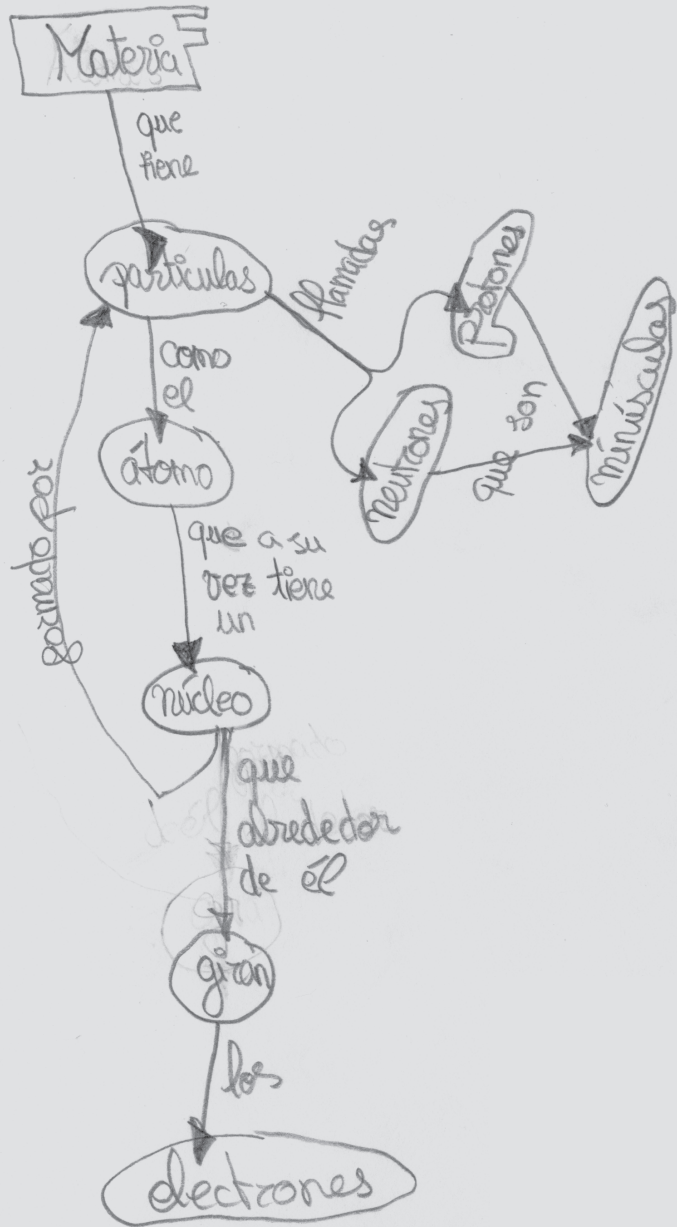 Materia
que
tiene
partículas
llamadas
Protones
neutrones
que son
minúsculas
como
el
átomo
que a su
vez tiene
un
núcleo
formado por
que
alrededor
de él
giran
los
electrones